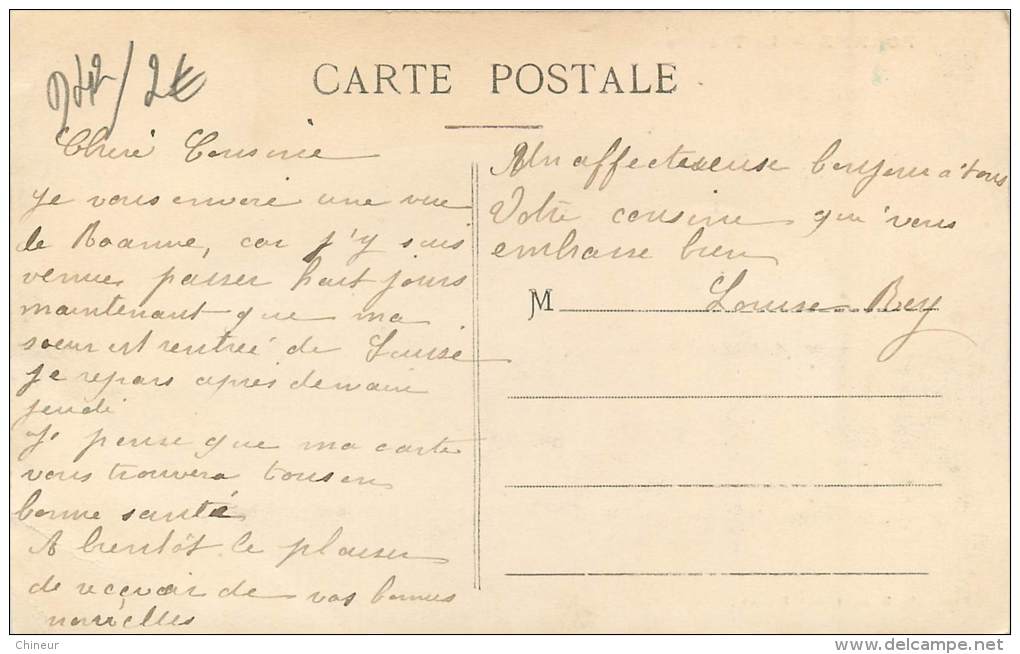 D42/2€
CARTE POSTALE
Chère Cousine
Je vous envoie une vue
de Roanne, car j'y suis
venue passer huit jours
maintenant que ma
soeur est rentrée de Suisse
Je repars après demain
jeudi
Je pense que ma carte
vous trouvera tous en
bonne santé
A bientôt le plaisir
de reçevoir de vos bonnes
nouvelles
Un affectueuse bonjour à tous
Votre cousine qui vous
embrasse bien
M Louise Rey
Chineur
delcampe.net